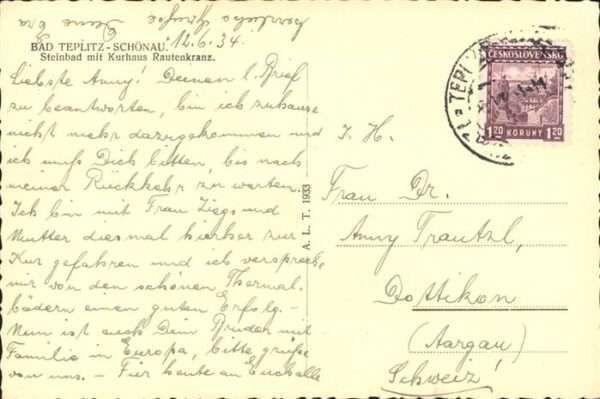 herzliche Grüsse
Deine Eva
BAD TEPLITZ-SCHÖNAU. 12.6.34.
Steinbad mit Kurhaus Rautenkranz.
Liebste Anny! Deinen l. Brief
zu beantworten, bin ich zuhause
nicht mehr dazugekommen und
ich muß Dich bitten, bis nach
meiner Rückkehr zu warten.
Ich bin mit Frau und
Mutter diesmal hierher zur
Kur gefahren und ich verspreche
mir von den schönen Thermal-
bädern einen guten Erfolg.
Nun ist auch Dein Bruder mit
Familie in Europa, bitte grüße
von uns. – Für heute an Euch alle
A. L. T. 1933
ČESKOSLOVENSKO
1.20 KORUNY 1.20
TEPL
I. H.
Frau Dr.
Anny Trautzl,
Dottikon
(Aargau)
Schweiz!